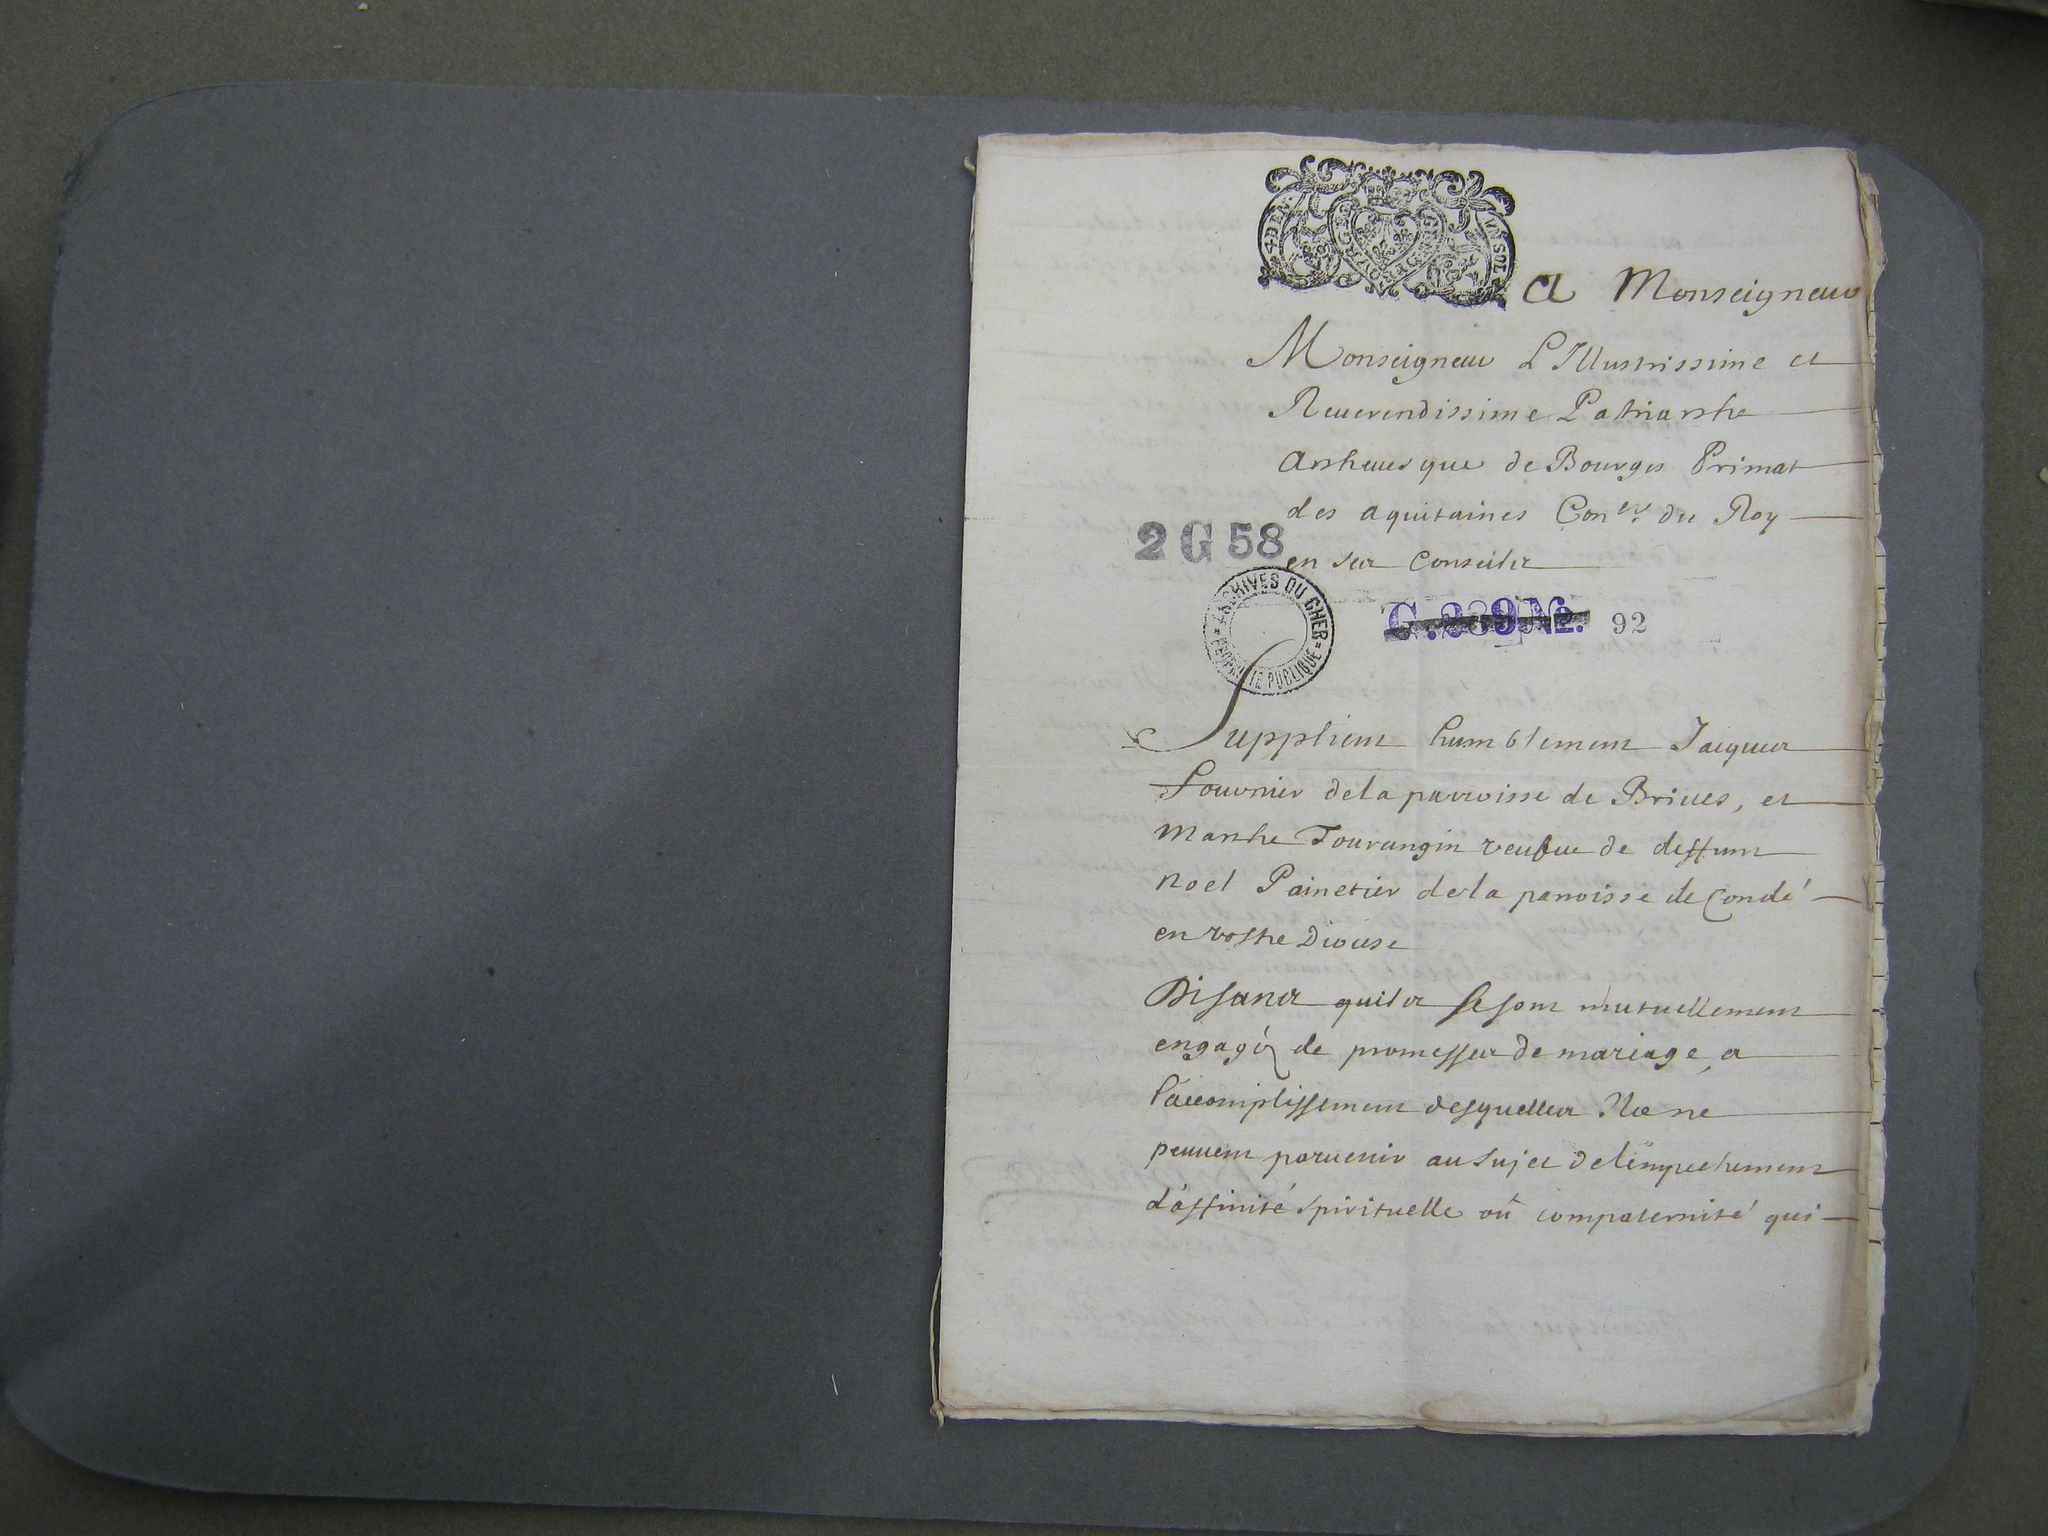 A Monseigneur
Monseigneur L'Illustrissime et
Reuerendissime Patriarche
Archeuesque de Bourges Primat
des aquitaines Con.er du Roy
en ses Conseils
2 G 58
ARCHIVES DU CHER
PROPRIETE PUBLIQUE
G. 239 No. 92
Supplient humblement Jacques
Fournier de la parroisse de Briues, et
marthe Tourangin veufue de deffunt
noel Painetier de la parroisse de Condé
en vostre Diocese
Disants quils se sont mutuellement
engagéz de promesses de mariage, a
l'accomplissement desquelles Ils ne
peuuent paruenir au sujet de lempechement
d'affinité spirituelle oû compaternité qui